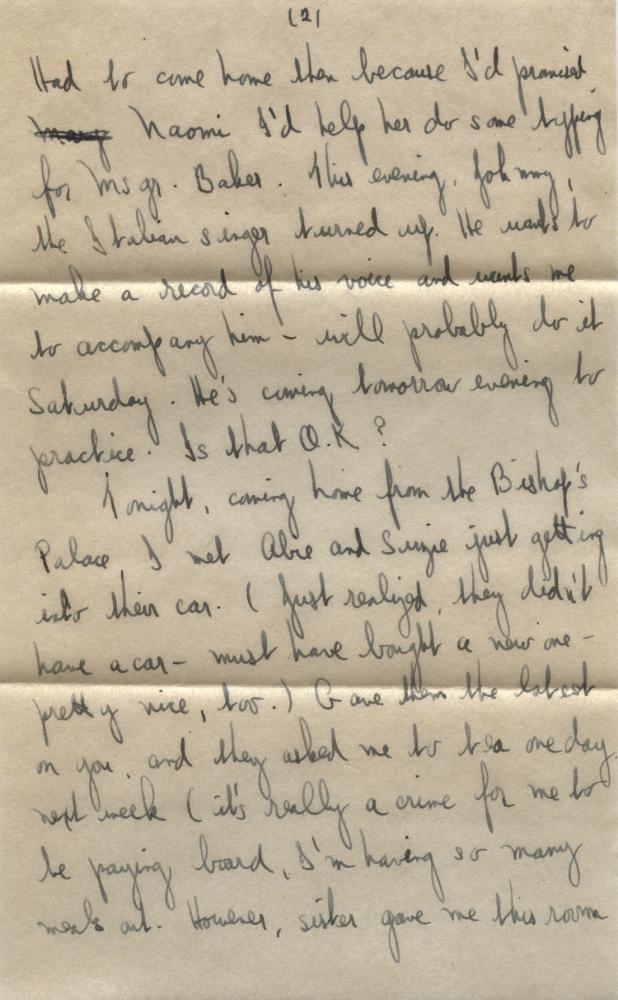 (2)
Had to come home then because I'd promised
Mary Naomi I'd help her do some typing
for Msgr. Baker. This evening, Johnny,
the Italian singer turned up. He wants to
make a record of his voice and wants me
to accompany him - will probably do it
Saturday. He's coming tomorrow evening to
practice. Is that O.K?
Tonight, coming home from the Bishop's
Palace, I met Abie and Suzie just getting
into their car. (Just realized, they didn't
have a car - must have bought a new one -
pretty nice, too.) Gave them the latest
on you, and they asked me to tea one day
next week (it's really a crime for me to
be paying board, I'm having so many
meals out. However, sister gave me this room